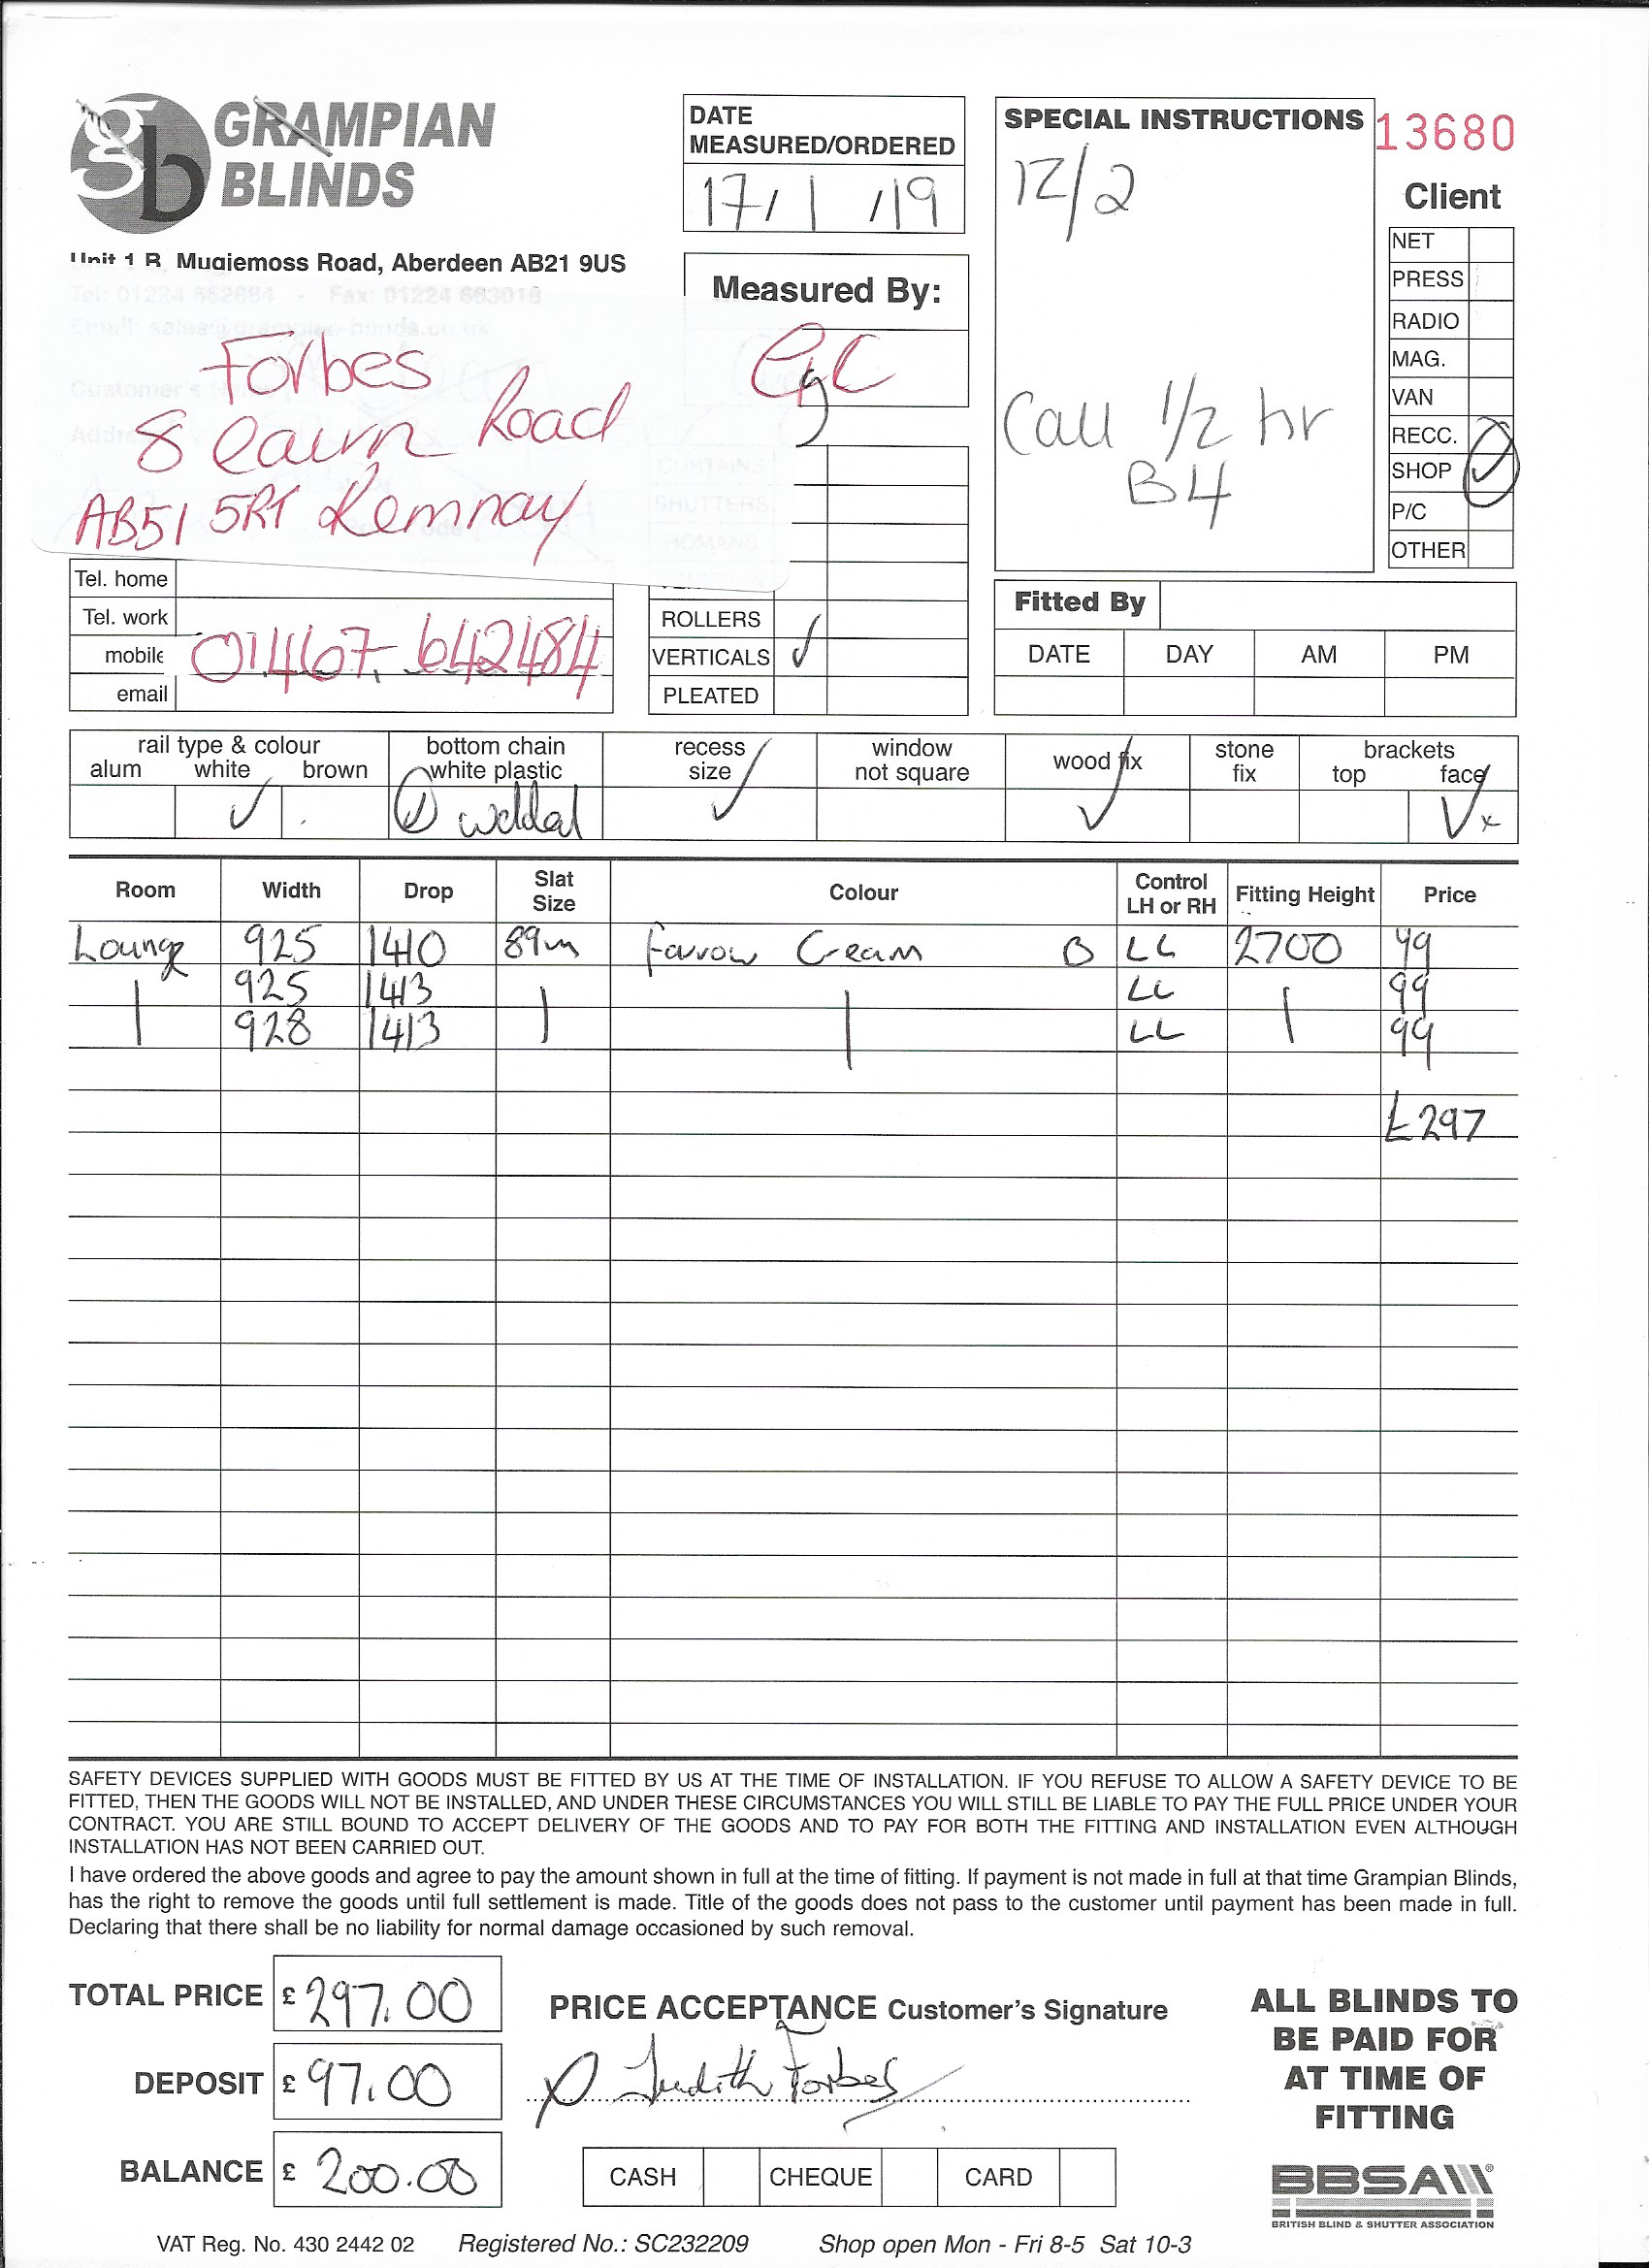 GRAMPIAN
BLINDS
Unit 1 B, Mugiemoss Road, Aberdeen AB21 9US
Tel: 01224 Fax: 01224
Forbes
8 Cairn Road
AB51 5RT Kemnay
Tel. home
Tel. work
mobile
email
01467 642484
DATE
MEASURED/ORDERED
17/1/19
Measured By:
CURTAINS
SHUTTERS
ROMANS
ROLLERS
VERTICALS ✓
PLEATED
SPECIAL INSTRUCTIONS
12/2
Call 1/2 hr
B4
13680
Client
NET
PRESS
RADIO
MAG.
VAN
RECC.
SHOP ✓
P/C
OTHER
Fitted By
DATE DAY AM PM
rail type & colour
alum white brown
bottom chain
white plastic
welded
recess
size
window
not square
wood fix
stone
fix
brackets
top face
Room Width Drop Slat Size Colour Control LH or RH Fitting Height Price
Lounge 925 1410 89m Farrow Cream B LL 2700 99
925 1413 LL 99
928 1413 LL 99
£297
SAFETY DEVICES SUPPLIED WITH GOODS MUST BE FITTED BY US AT THE TIME OF INSTALLATION. IF YOU REFUSE TO ALLOW A SAFETY DEVICE TO BE
FITTED, THEN THE GOODS WILL NOT BE INSTALLED, AND UNDER THESE CIRCUMSTANCES YOU WILL STILL BE LIABLE TO PAY THE FULL PRICE UNDER YOUR
CONTRACT. YOU ARE STILL BOUND TO ACCEPT DELIVERY OF THE GOODS AND TO PAY FOR BOTH THE FITTING AND INSTALLATION EVEN ALTHOUGH
INSTALLATION HAS NOT BEEN CARRIED OUT.
I have ordered the above goods and agree to pay the amount shown in full at the time of fitting. If payment is not made in full at that time Grampian Blinds,
has the right to remove the goods until full settlement is made. Title of the goods does not pass to the customer until payment has been made in full.
Declaring that there shall be no liability for normal damage occasioned by such removal.
TOTAL PRICE £ 297.00
DEPOSIT £ 97.00
BALANCE £ 200.00
PRICE ACCEPTANCE Customer's Signature
Judith Forbes
CASH CHEQUE CARD
ALL BLINDS TO
BE PAID FOR
AT TIME OF
FITTING
BBSA
BRITISH BLIND & SHUTTER ASSOCIATION
VAT Reg. No. 430 2442 02 Registered No.: SC232209 Shop open Mon - Fri 8-5 Sat 10-3